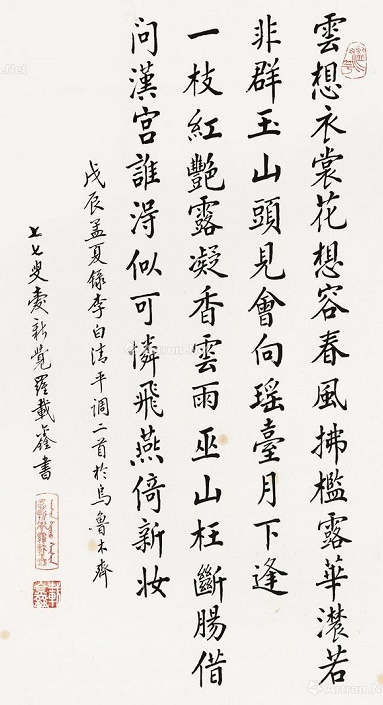 雲想衣裳花想容春風拂檻露華濃若
非群玉山頭見會向瑶臺月下逢
一枝紅艷露凝香雲雨巫山枉斷腸借
问漢宫誰得似可憐飛燕倚新妆
戊辰孟夏録李白清平调二首於烏魯木齊
七七叟愛新覺羅載鑫書